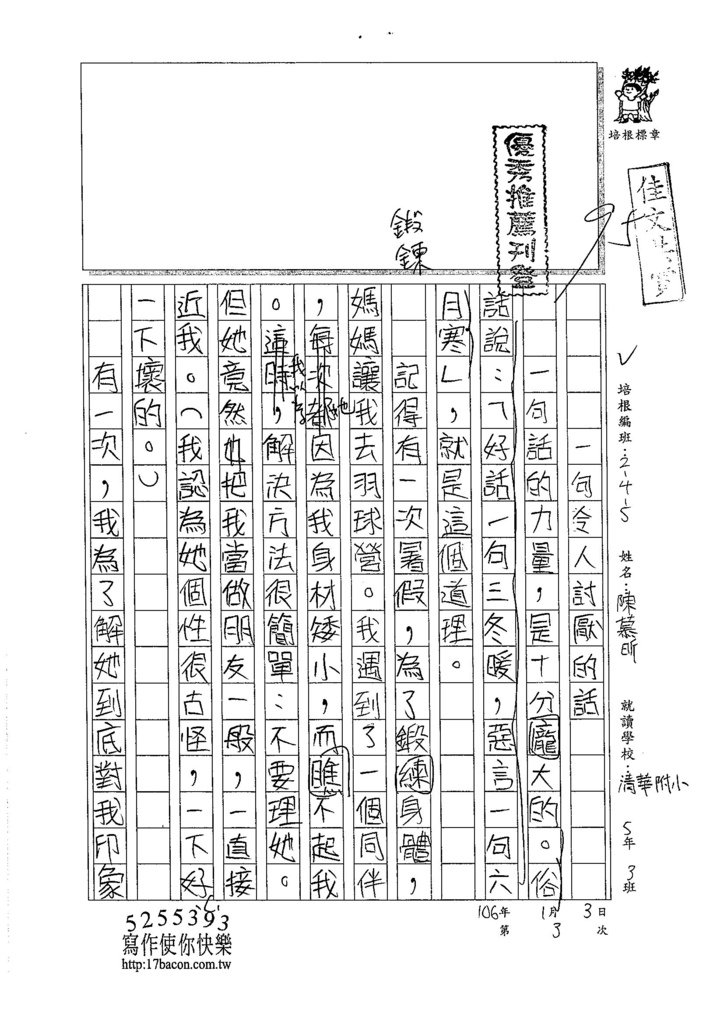 培根標章
優秀推薦刊登
佳文共賞
95
鍛鍊
培根編班：2-4-5 姓名：陳慕昕 就讀學校：清華附小 5年3班
106年1月3日
第3次
一句令人討厭的話
一句話的力量，是十分龐大的。俗
話說：「好話一句三冬暖，惡言一句六
月寒」，就是這個道理。
記得有一次暑假，為了鍛練身體，
媽媽讓我去羽球營。我遇到了一個同伴
，每次都她因為我身材矮小，而瞧不起我
。這時我以為，解決方法很簡單：不要理她。
但她竟然把我當做朋友一般，一直接
近我。（我認為她個性很古怪，一下好
一下壞的。）
有一次，我為了解她到底對我印象
5255393
寫作使你快樂
http:17bacon.com.tw